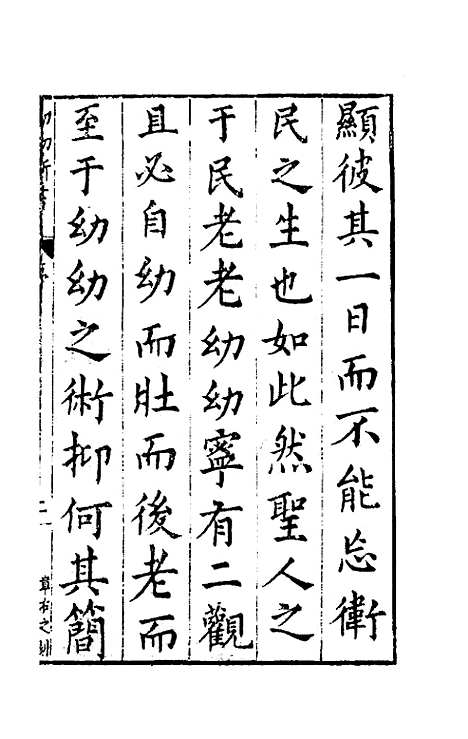 顯彼其一日而不能忘衛
民之生也如此然聖人之
于民老老幼幼寧有二觀
且必自幼而壯而後老而
至于幼幼之術抑何其簡
幼幼新書
序
二
章右之刻